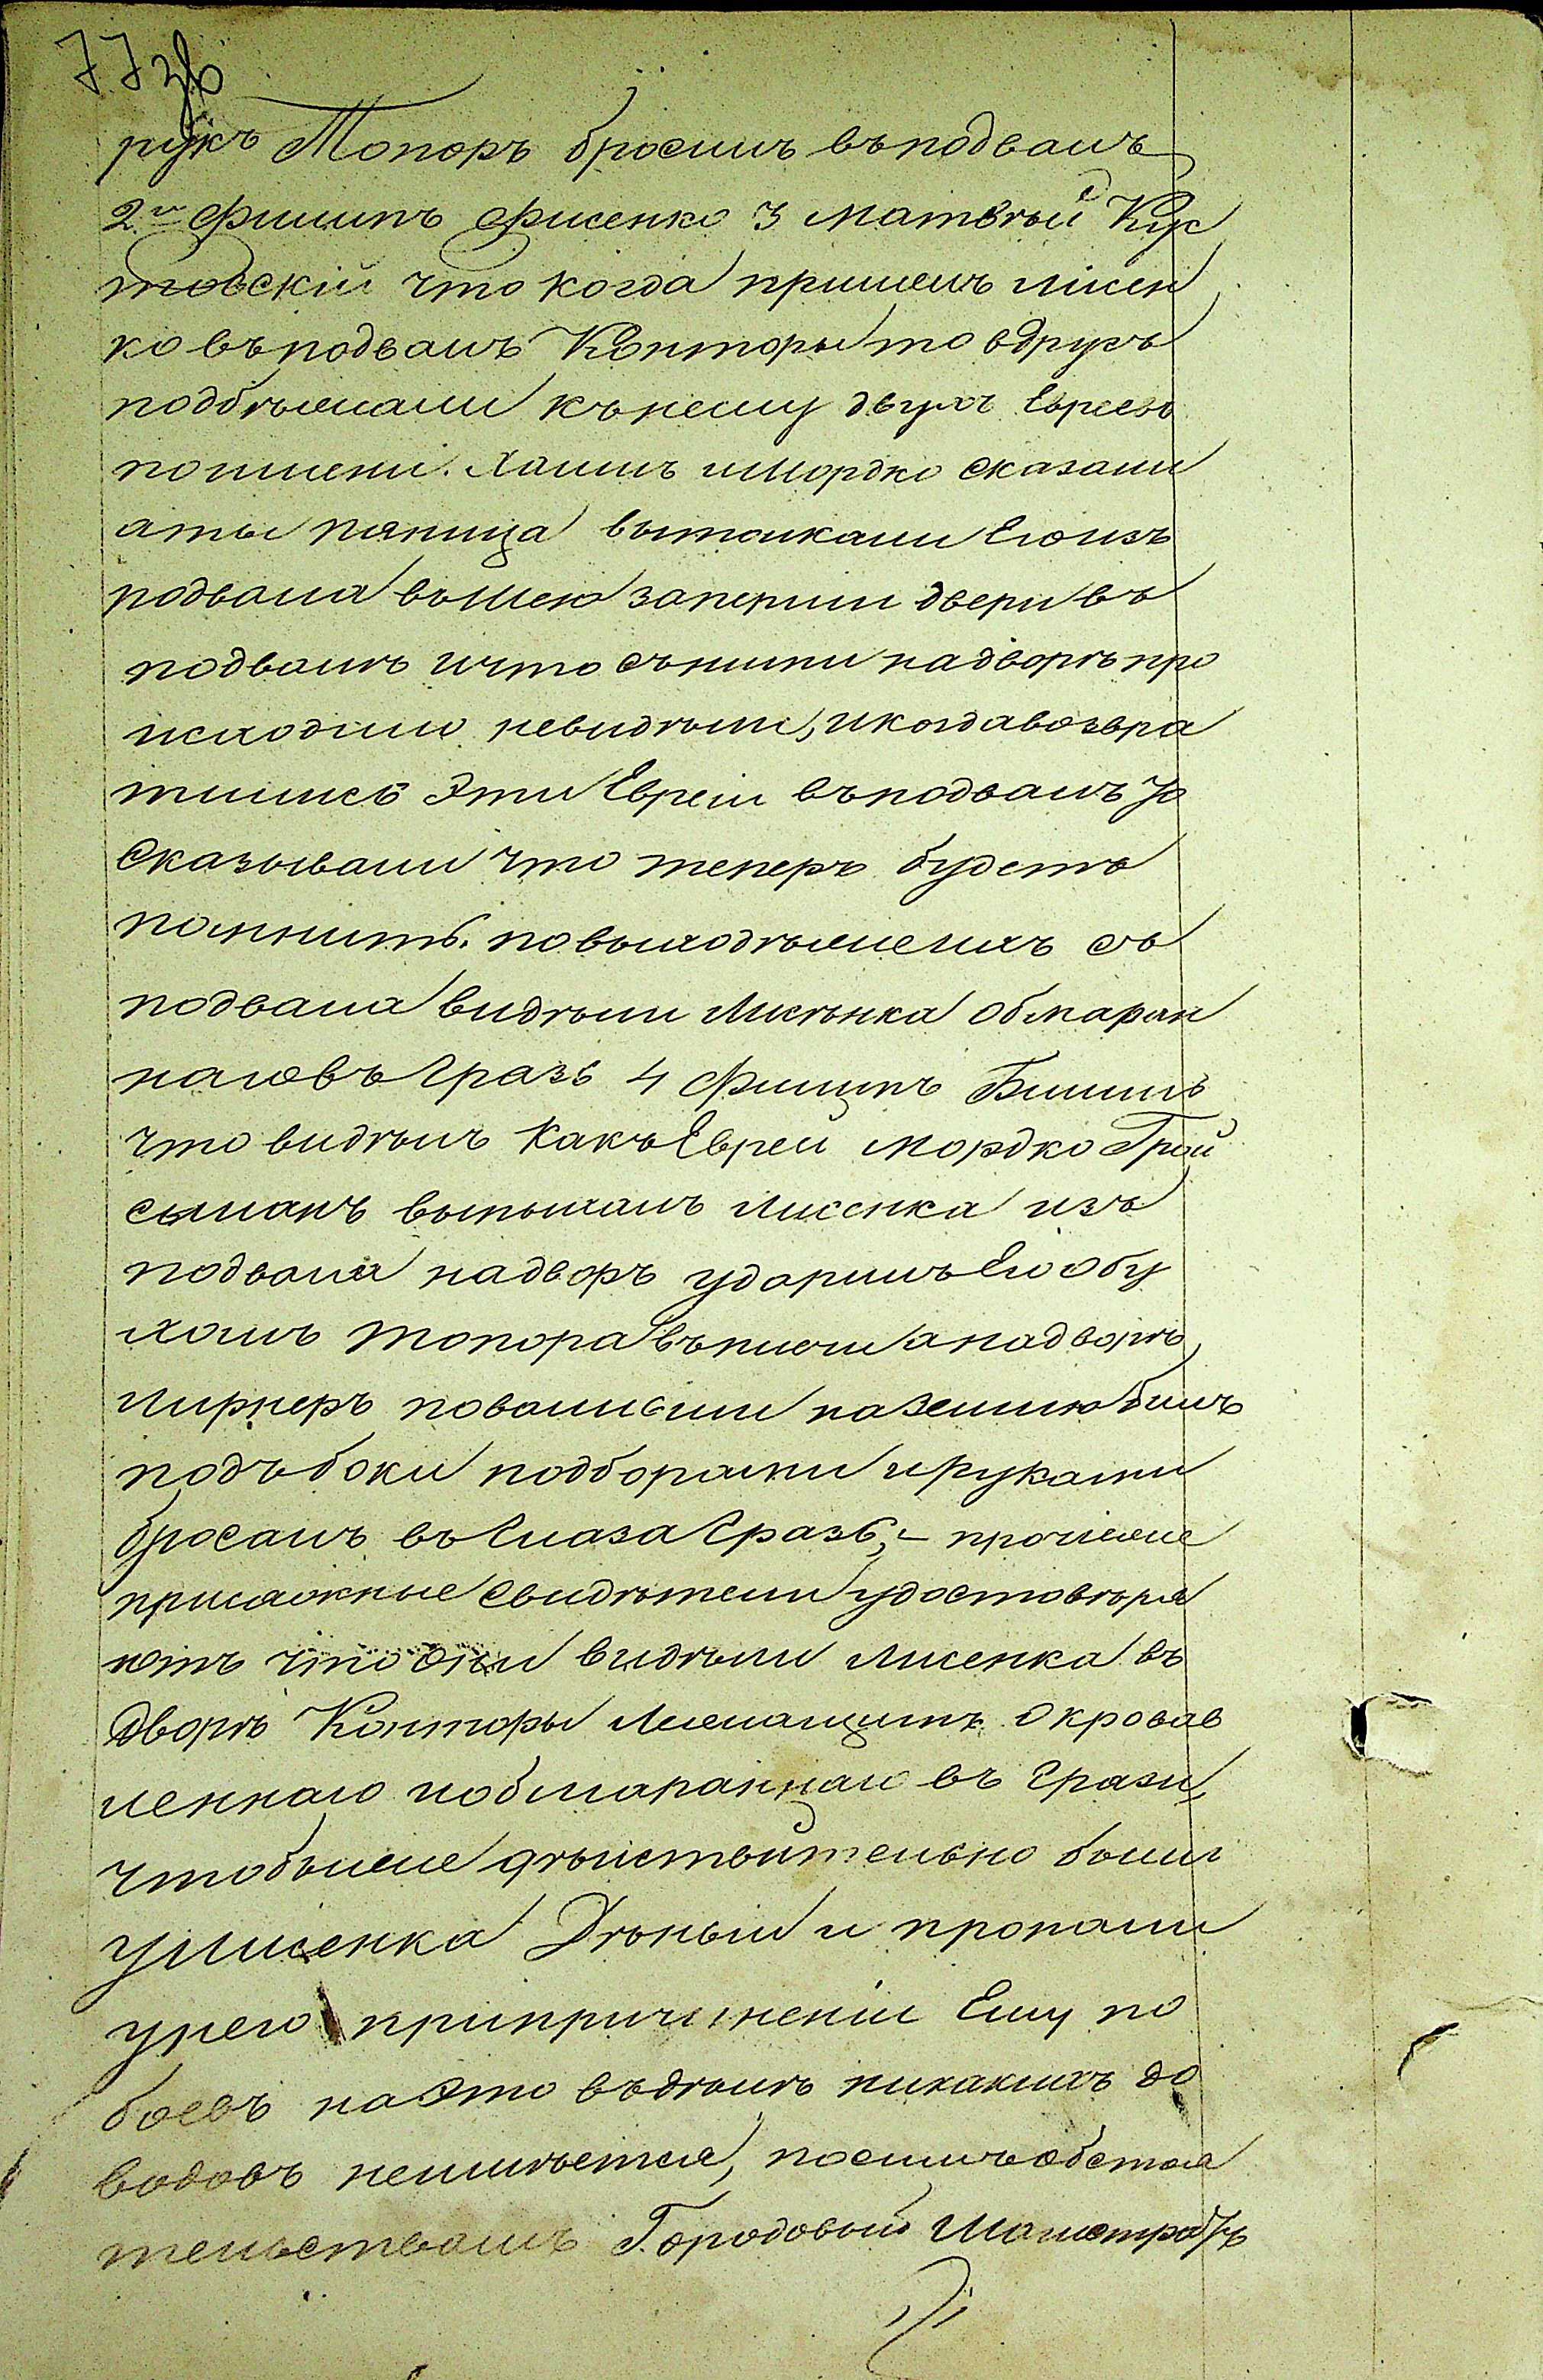 77 зв
рукъ Топоръ бросилъ въ подвалъ
2й Филипъ Фисенко 3 Матвѣй Кус
товскій что когда пришелъ лисен
ко въ подвалъ Конторы то вдругъ
подбѣжали къ нему двухъ Евреевъ
по имени. Хаимъ и Мордко сказали
а ты пяница вытолкали Его изъ
подвала въ шею заперли двери въ
подвалъ и что съ ними на дворѣ про
исходило невидѣли, и когда возвра
тились эти Евреи въ подвалъ то
сказывали что теперъ будетъ
помнить. по выходѣ же ихъ съ
подвала видѣли Лисѣнка обмаран
наго въ Грязь 4 Филипъ Билимъ
что видѣлъ какъ Еврей Мордко Грой
сманъ выпихалъ лисенка изъ
подвала на дворъ ударилъ Его обу
хомъ топора въ плечи а на дворѣ
Лирнеръ поваливши на землю билъ
подъ боки подборами и руками
бросалъ въ Глаза Грязь, – прочіеже
присяжные свидѣтели удостовѣря
ютъ что они видѣли лисенка въ
дворѣ Конторы лежащимъ окровав
леннаго и обмараннаго въ грязи,
чтобы же дѣйствительно были
у лисенка Дѣньги и пропали
у него при причиненіи Ему по
боевъ на это въ дѣлѣ никакихъ до
водовъ неимѣется, по симъ обстоя
тельствамъ Городовый Магистратъ